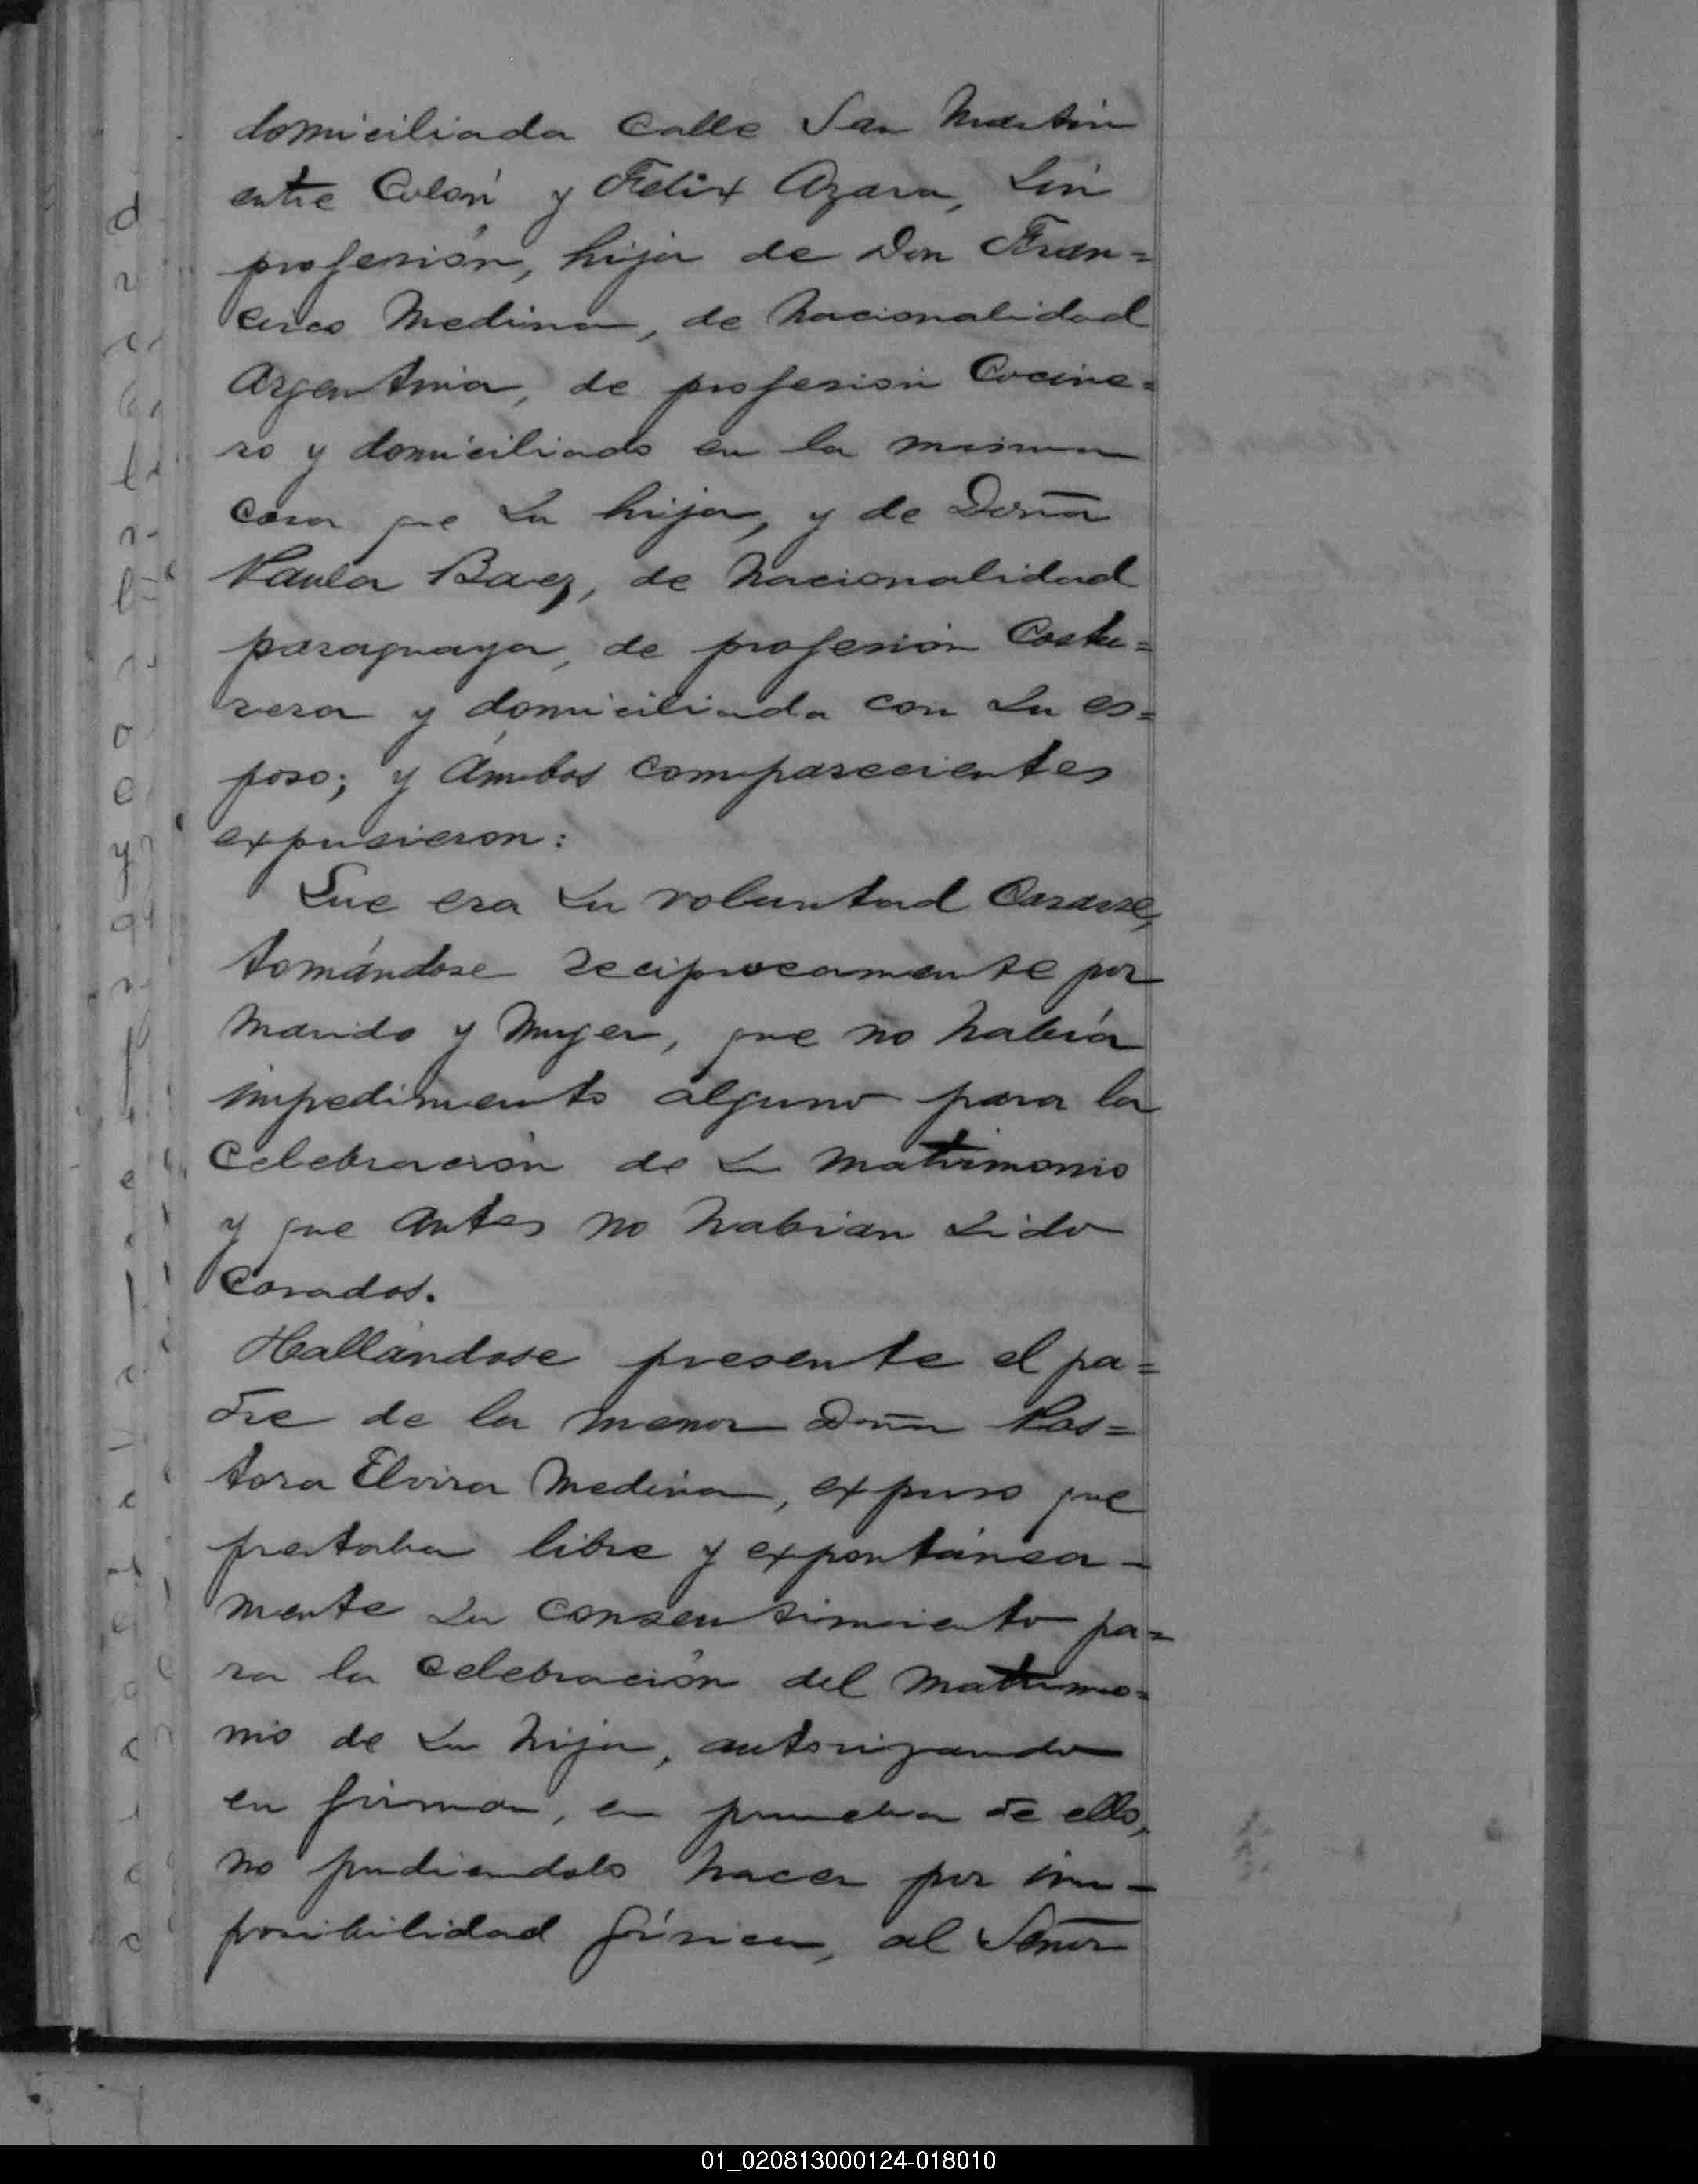 domiciliada calle San Martin
entre Colón y Felix Azara, sin
profesión, hija de Don Fran=
cisco Medina, de nacionalidad
Argentina, de profesión Cocine=
ro y domiciliado en la misma
casa que su hija, y de Doña
Paula Baez, de nacionalidad
paraguaya, de profesión Costu=
rera y domiciliada con su es=
poso; y ámbos comparecientes
expusieron:
Que era su voluntad Casarse,
tomándose reciprocamente por
marido y muger, que no había
impedimento alguno para la
Celebración de su matrimonio
y que antes no habian sido
Casados.
Hallándose presente el pa=
dre de la menor Doña Pas=
tora Elvira Medina, expuso que
prestaba libre y expontánea-
mente su consentimiento pa=
ra la celebración del matrimo=
nio de su hija, autorizando
en firmar, en prueba de ello,
no pudiendolo hacer por im-
posibilidad física, al Señor
01_020813000124-018010